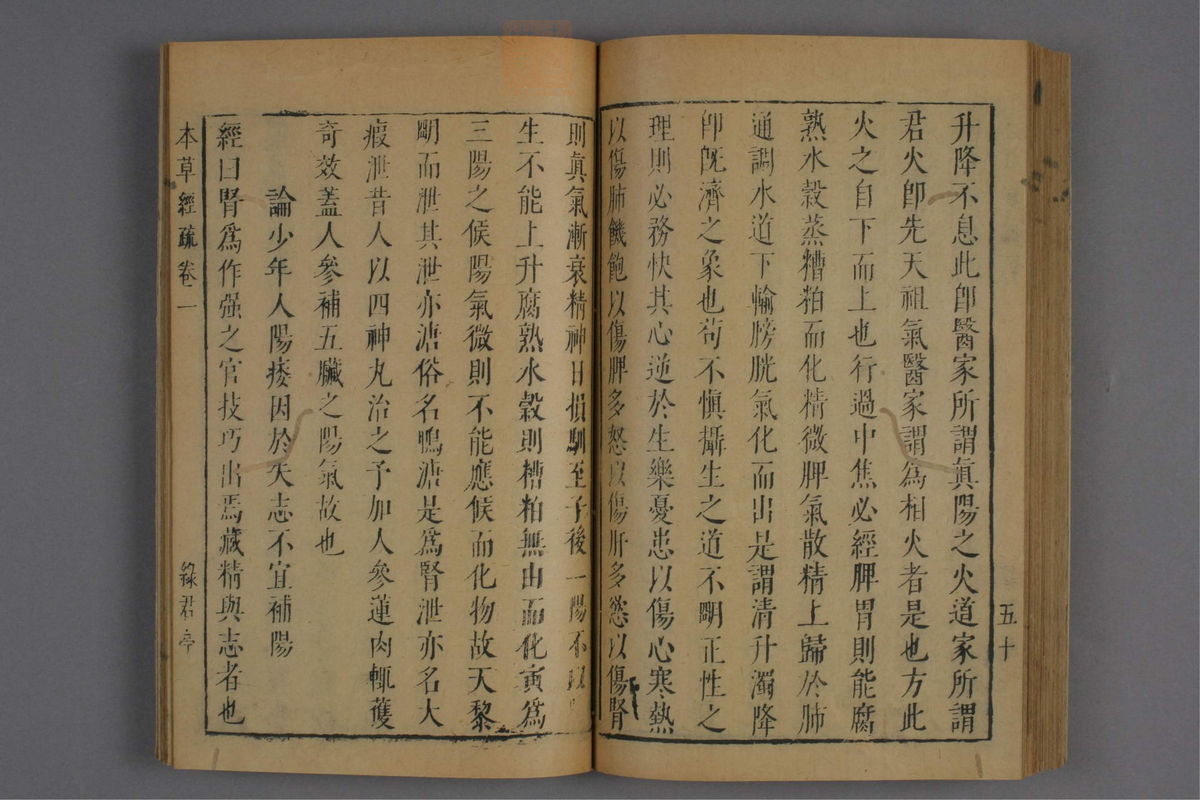 升降不息此卽醫家所謂眞陽之火道家所謂
君火卽先天祖氣醫家謂爲相火者是也方此
火之自下而上也行過中焦必經脾胃則能腐
熟水穀蒸糟粕而化精微脾氣散精上歸於肺
通調水道下輸膀胱氣化而出是謂清升濁降
卽旣濟之象也苟不愼攝生之道不明正性之
理則必務快其心逆於生樂憂患以傷心寒熱
以傷肺饑飽以傷脾多怒以傷肝多慾以傷腎
五十
則眞氣漸衰精神日損馴至子後一陽不以
生不能上升腐熟水穀則糟粕無由而化寅爲
三陽之候陽氣微則不能應候而化物故天黎
明而泄其泄亦溏俗名鴨溏是爲腎泄亦名大
瘕泄昔人以四神丸治之予加人參蓮肉輒獲
奇效蓋人參補五臟之陽氣故也
論少年人陽痿因於失志不宜補陽
經曰腎爲作强之官技巧出焉藏精與志者也
本草經疏卷一
綠君亭